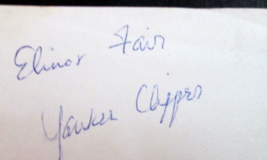 Elinor Fair
Yankee Clipper